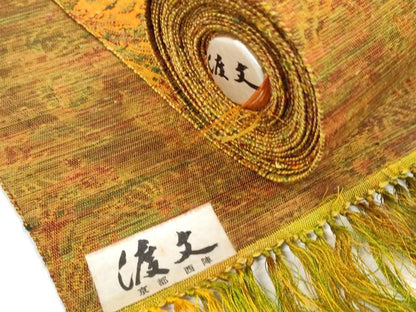 渡文
渡文
京都 西陣